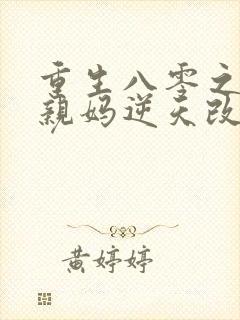 重生八零之
親妈逆天改
黄婷婷